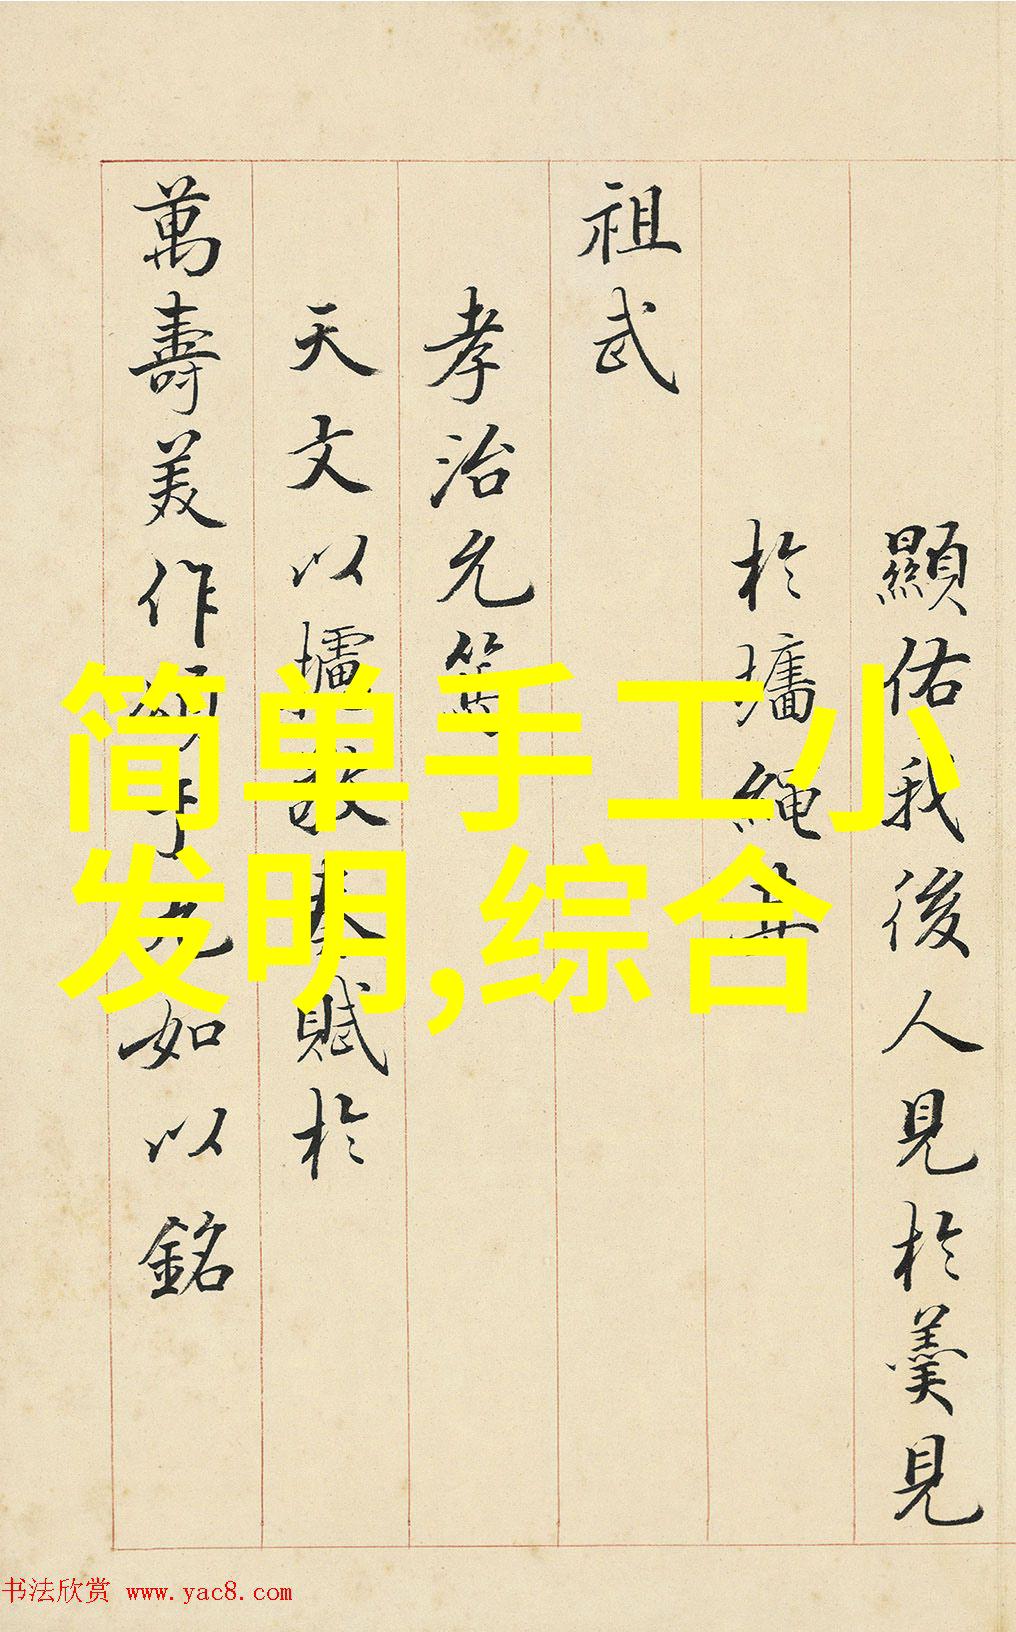 顯佑我後人見於羹見
於墻繩其
祖武
孝治允
天文以 賦於
萬壽美作 如以銘
简单手工小
发明,综合
书法欣赏 www.yac8.com